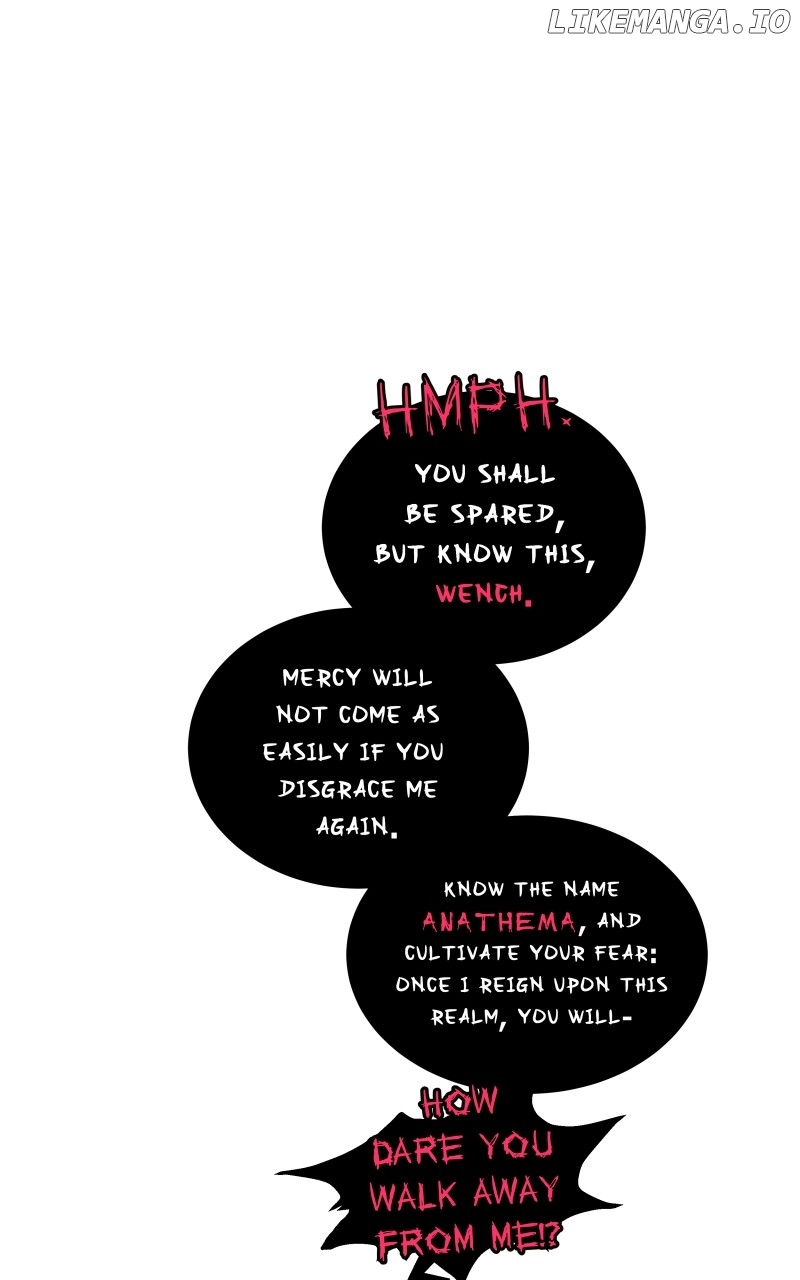 LIKEMANGA.IO
HMPH.
YOU SHALL
BE SPARED,
BUT KNOW THIS,
WENCH.
MERCY WILL
NOT COME AS
EASILY IF YOU
DISGRACE ME
AGAIN.
KNOW THE NAME
ANATHEMA, AND
CULTIVATE YOUR FEAR:
ONCE I REIGN UPON THIS
REALM, YOU WILL-
HOW
DARE YOU
WALK AWAY
FROM ME!?